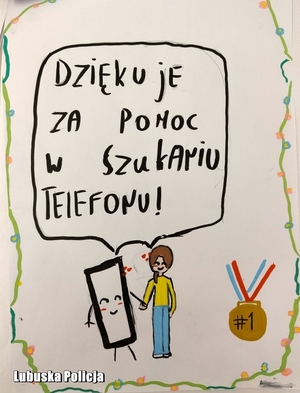 DZIĘKUJE
ZA POMOC
W SZUKANIU
TELEFONU!
#1
Lubuska Policja